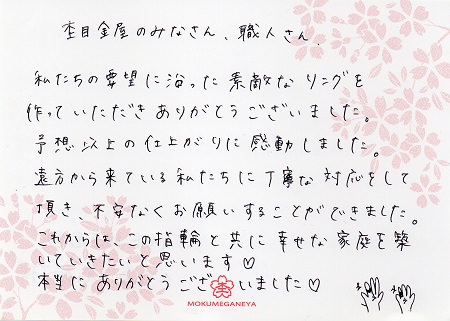 杢目金屋のみなさん、職人さん、
私たちの要望に沿った素敵なリングを
作っていただきありがとうございました。
予想以上の仕上がりに感動しました。
遠方から来ている私たちに丁寧な対応をして
頂き、不安なくお願いすることができました。
これからは、この指輪と共に幸せな家庭を築
いていきたいと思います♡
本当にありがとうございました♡
MOKUMEGANEYA